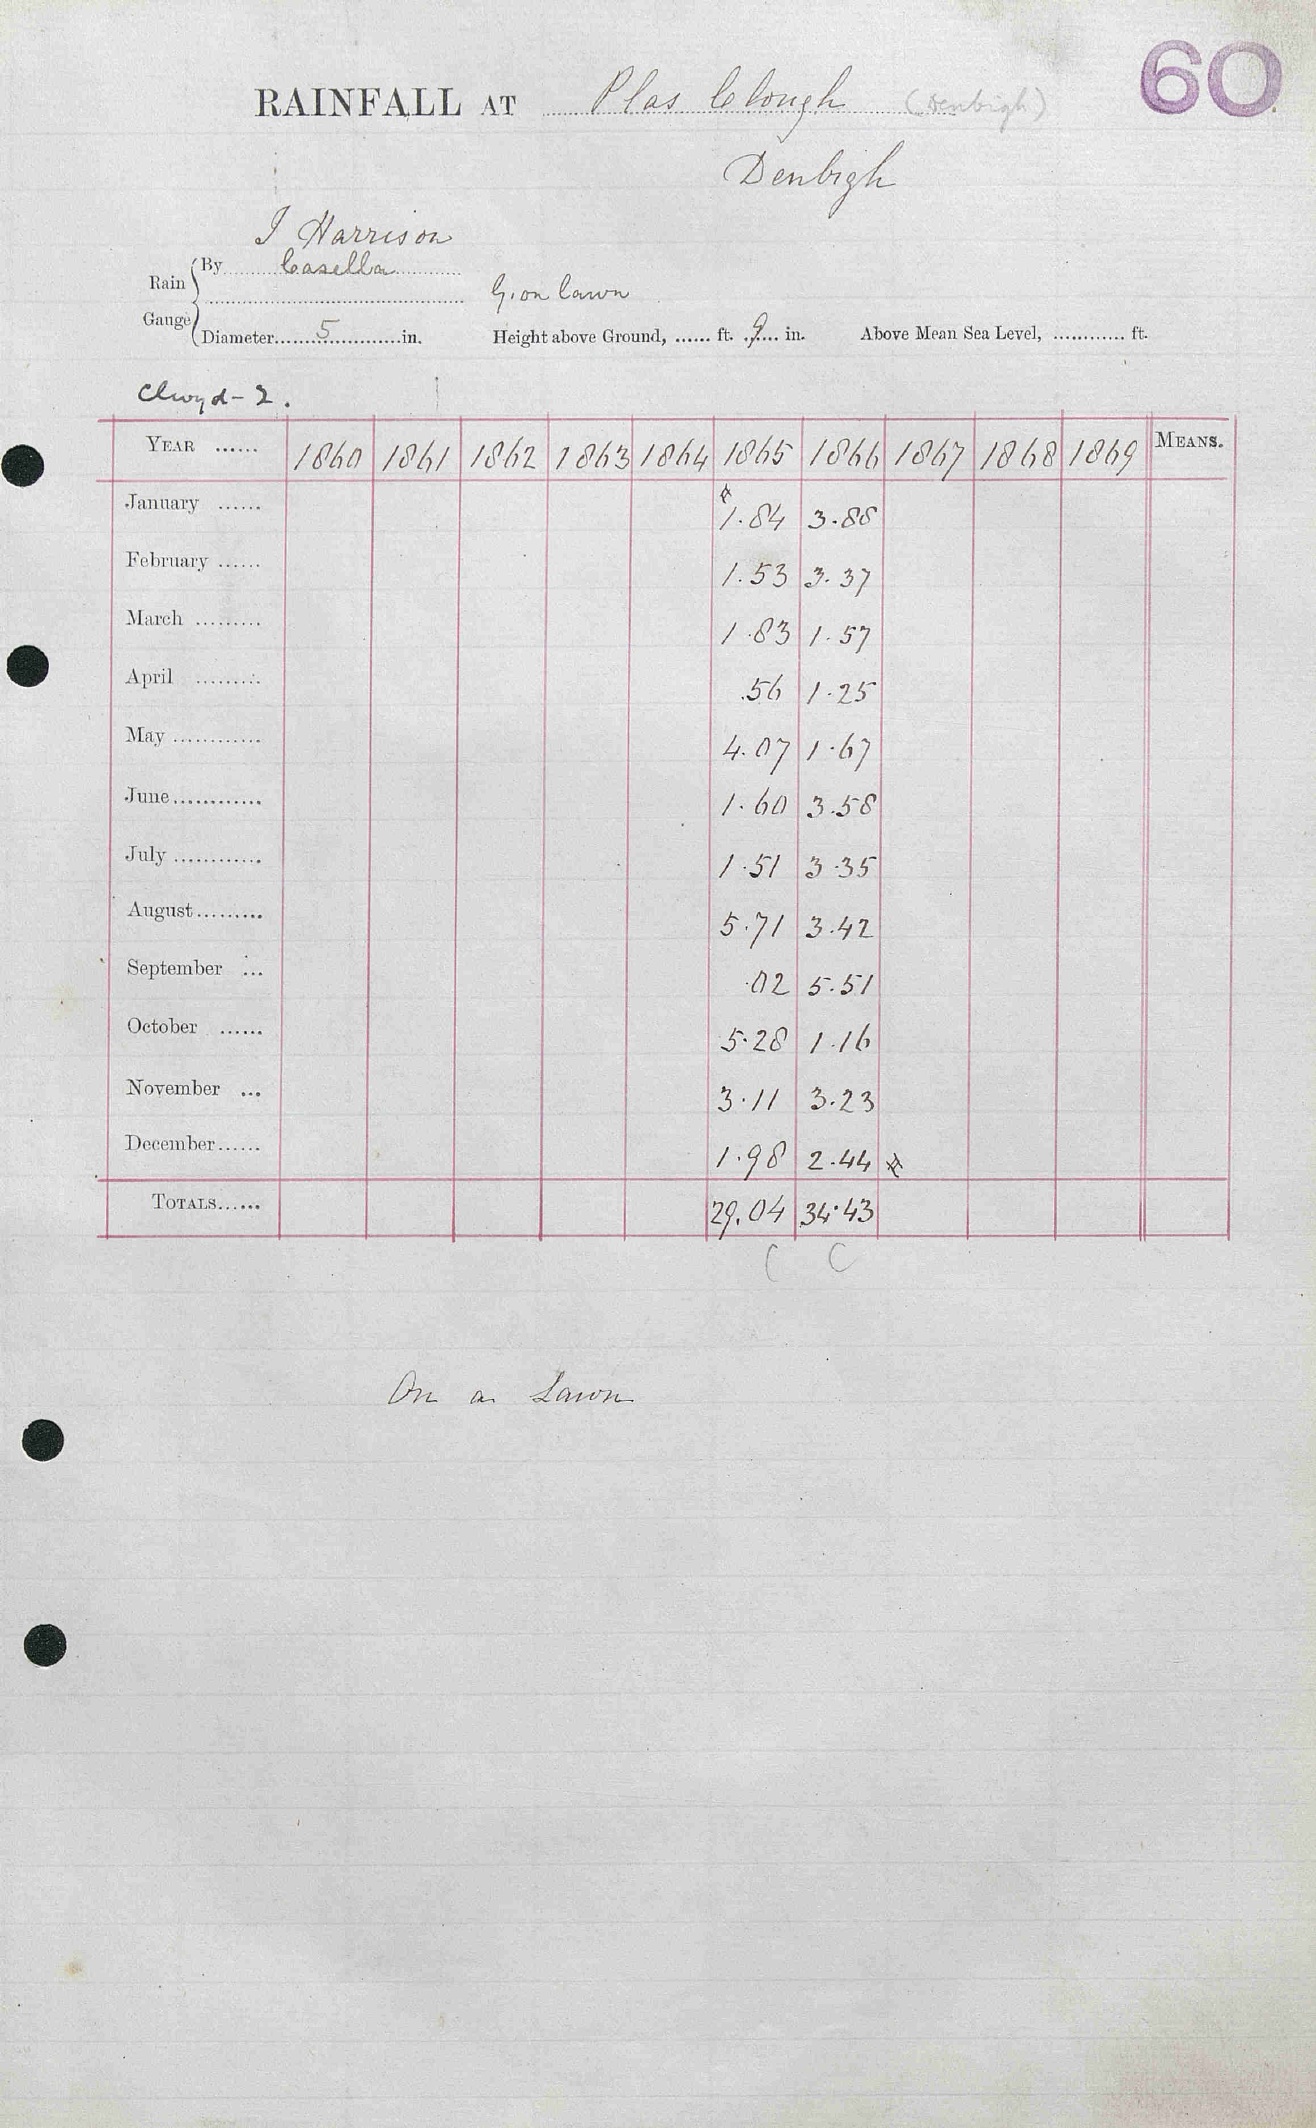 60
RAINFALL AT Plas Clough (Denbigh)
Denbigh
J Harrison
Rain Gauge { By Casella
G. on lawn
Diameter 5 in. Height above Ground, ...... ft. 9 in. Above Mean Sea Level, ............ ft.
Clwyd - 2.
YEAR ...... 1860 1861 1862 1863 1864 1865 1866 1867 1868 1869 MEANS.
January ...... 1.84 3.88
February ...... 1.53 3.37
March ......... 1.83 1.57
April ......... .56 1.25
May ............ 4.07 1.67
June ............ 1.60 3.58
July ............ 1.51 3.35
August ......... 5.71 3.42
September ... .02 5.51
October ...... 5.28 1.16
November ... 3.11 3.23
December ...... 1.98 2.44
TOTALS ...... 29.04 34.43
C C
On a Lawn